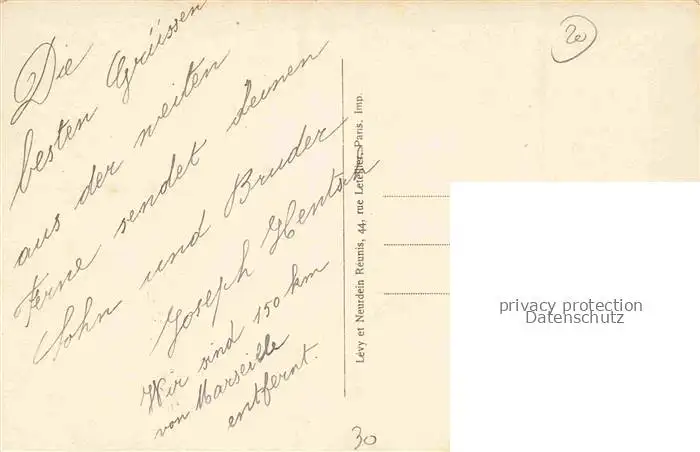 Die
besten Grüssen
aus der weiten
Ferne sendet deinen
Sohn und Bruder
Joseph Hentsch
Wir sind 150 km
von Marseille
entfernt.
Lévy et Neurdein Réunis, 44, rue Letellier, Paris. Imp.
20
30
privacy protection
Datenschutz